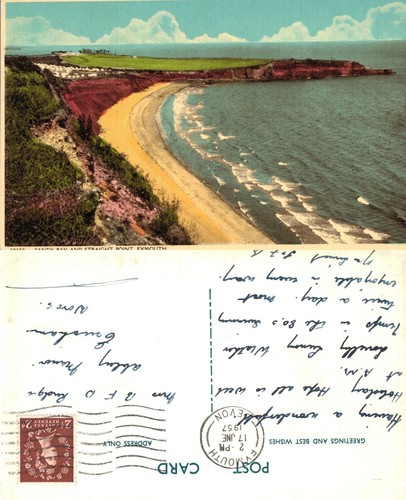 SANDY BAY AND STRAIGHT POINT, EXMOUTH
POST CARD
GREETINGS AND BEST WISHES
ADDRESS ONLY
EXMOUTH
2 - PM
17 JNE
1957
DEVON
Having a wonderful
Holiday Hope all is well
at
lovely Sunny Weather
Temps in the 80.s Swimming
Twice a day. most
enjoyable in every way.
Mrs B F D
Abbey
Evesham
Worcs